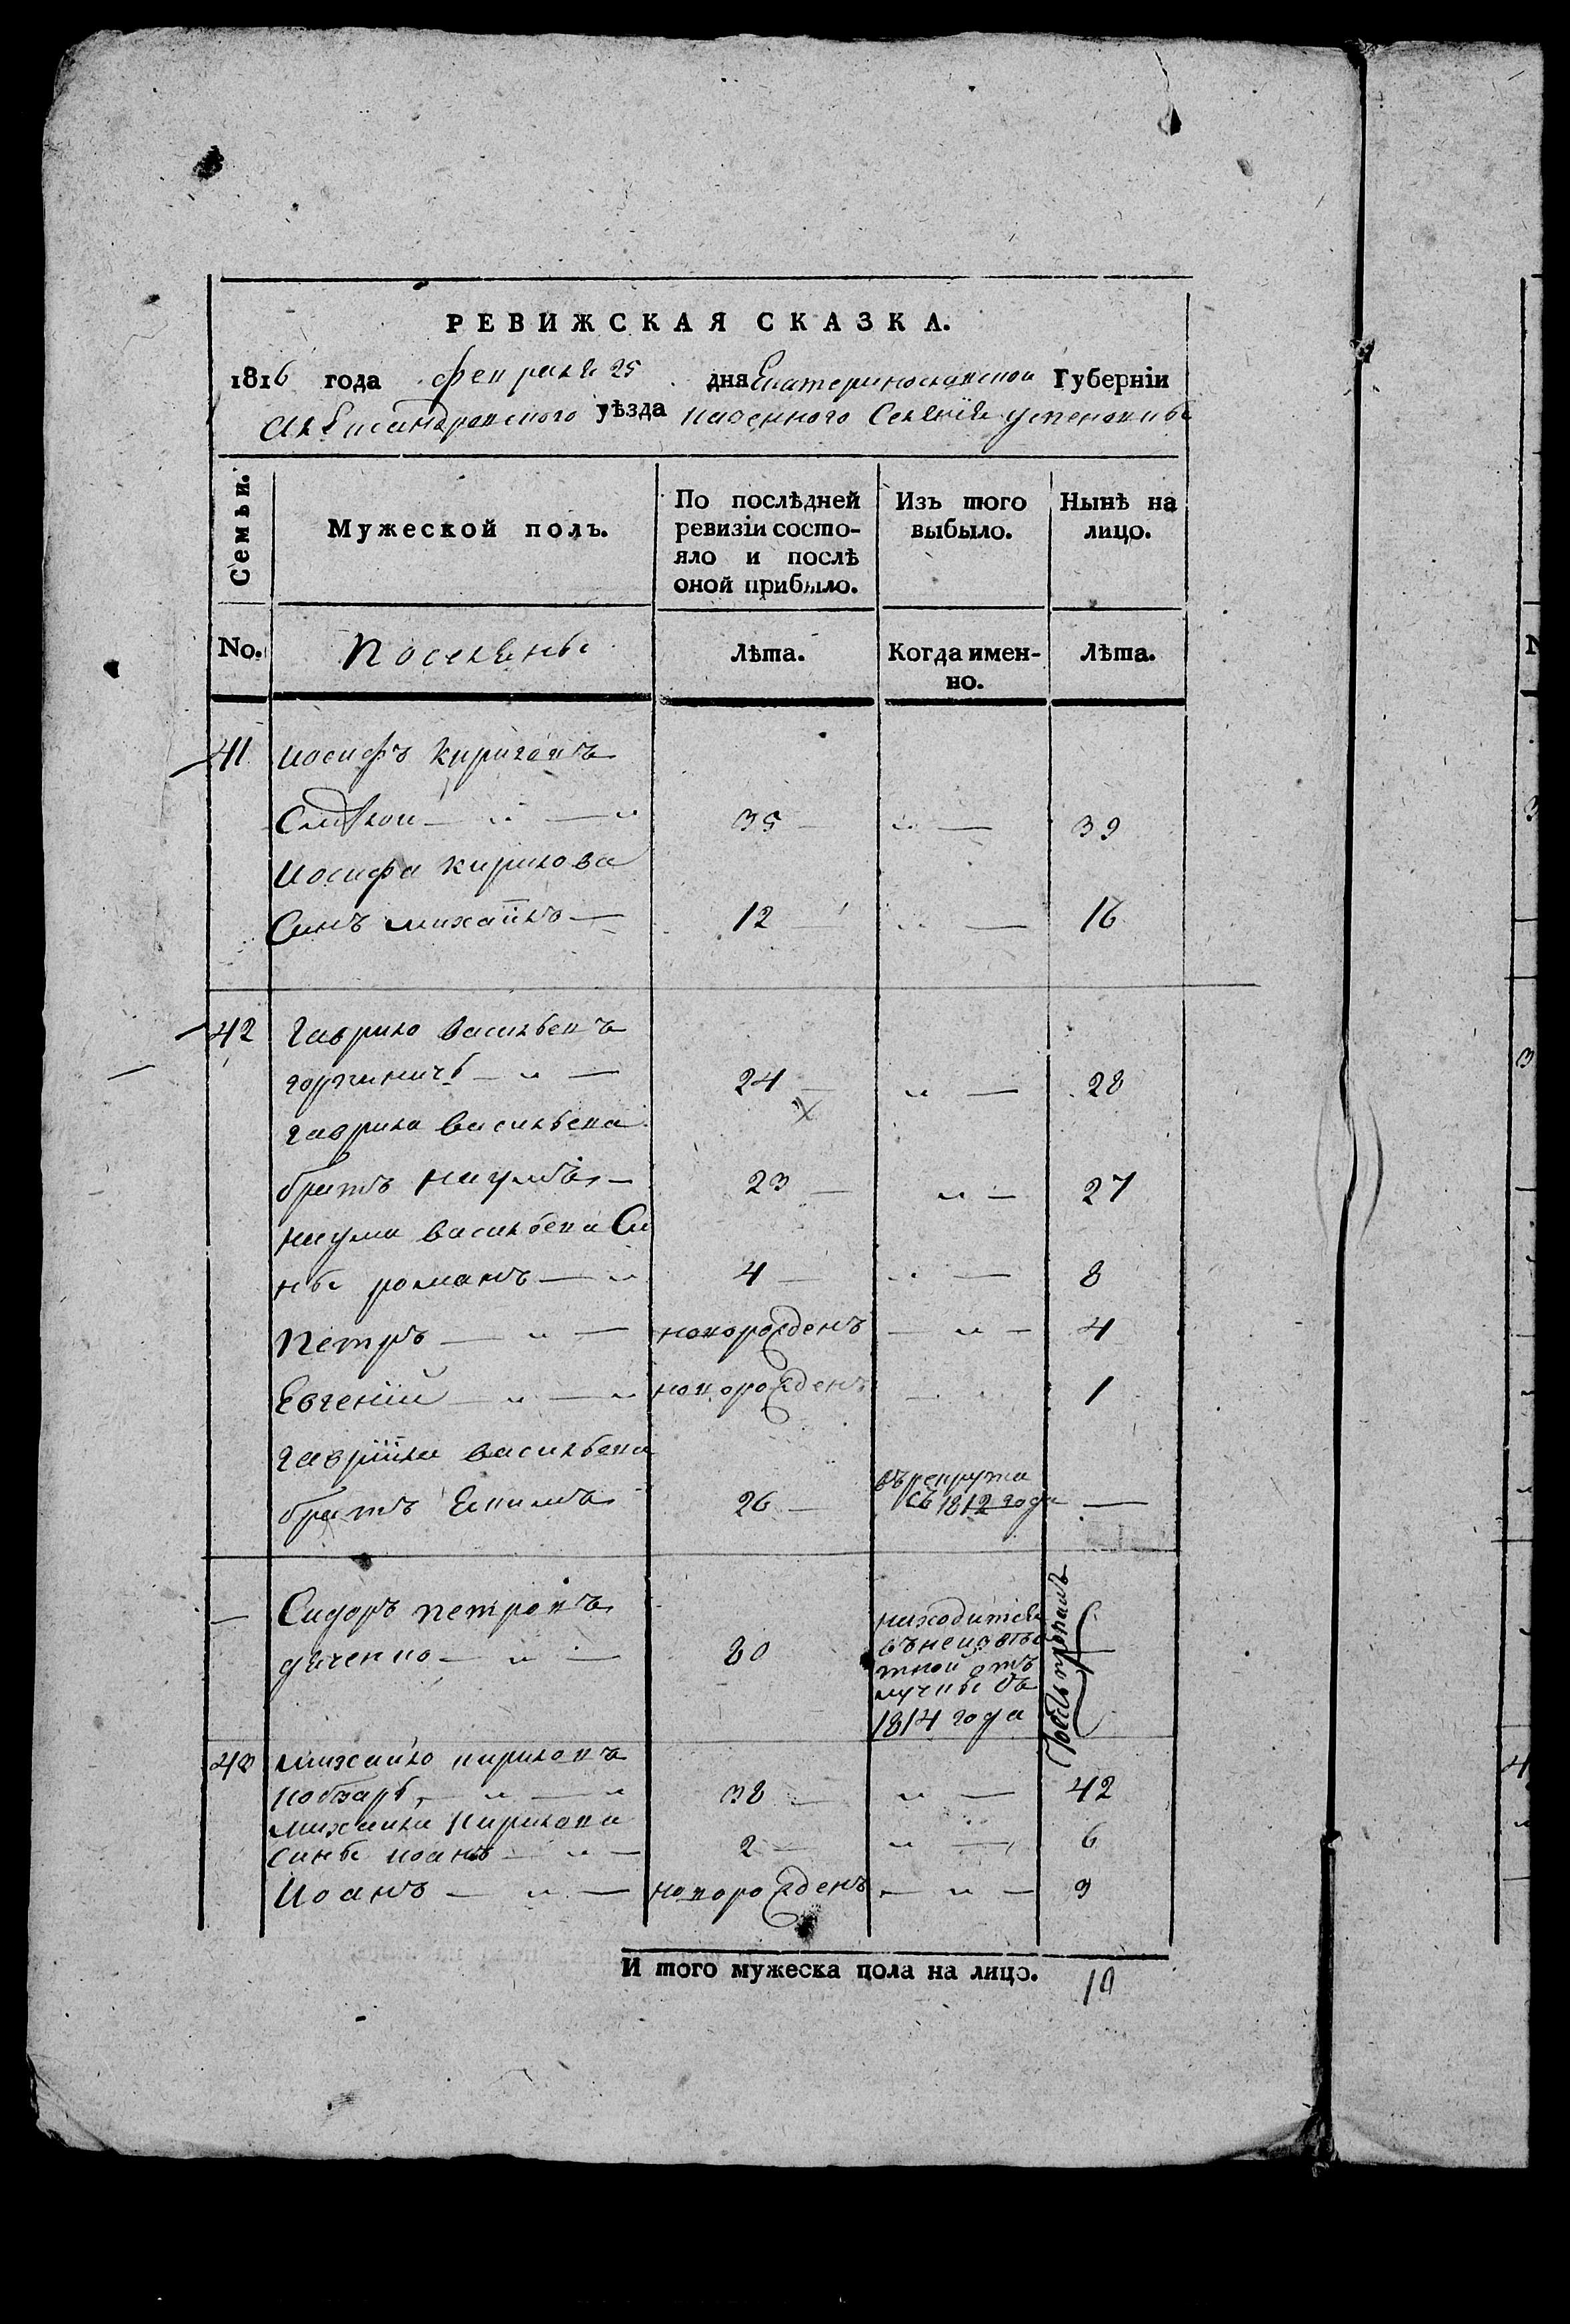 РЕВИЖСКАЯ СКАЗКА.
1816 года февраля 25 дня Екатеринославской Губерніи
Александровского уѣзда казенного Селѣнія успеновки
Семьи.
Мужеской полъ.
По послѣдней ревизіи состо-
яло и послѣ
оной прибыло.
Изъ того
выбыло.
Нынѣ на
лицо.
No.
Поселяне
Лѣта.
Когда имен-
но.
Лѣта.
41 иосифъ кириловъ
35 39
Иосифа кирилова
Синъ михаилъ 12 16
42 гаврило васильевъ
24 28
гаврила васильева
братъ наумъ 23 27
наума васильева Си
ны романъ 4 8
Петръ новорожденъ 4
Евгений новорожденъ 1
гаврила васильева
братъ Екимъ 26 въ рекрута
съ 1812 года
Сидоръ петровъ
дяченко 80 находится
въ неизвѣс
тной отъ
лучкы съ
1814 года
43 михайло кириловъ
кобзарь 38 42
михайла Кирилова
сины иоанъ 2 6
Иоанъ новорожденъ 3
И того мужеска пола на лицо. 10